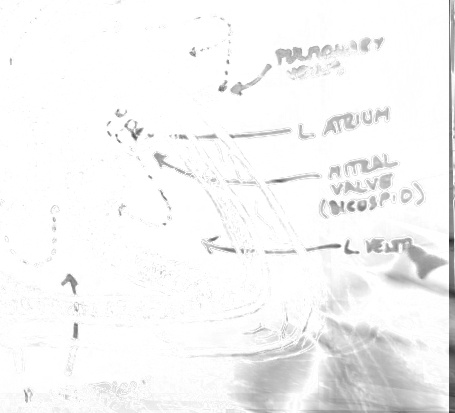 PULMONARY
VEINS
L. ATRIUM
MITRAL
VALVE
(BICUSPID)
L. VENTR